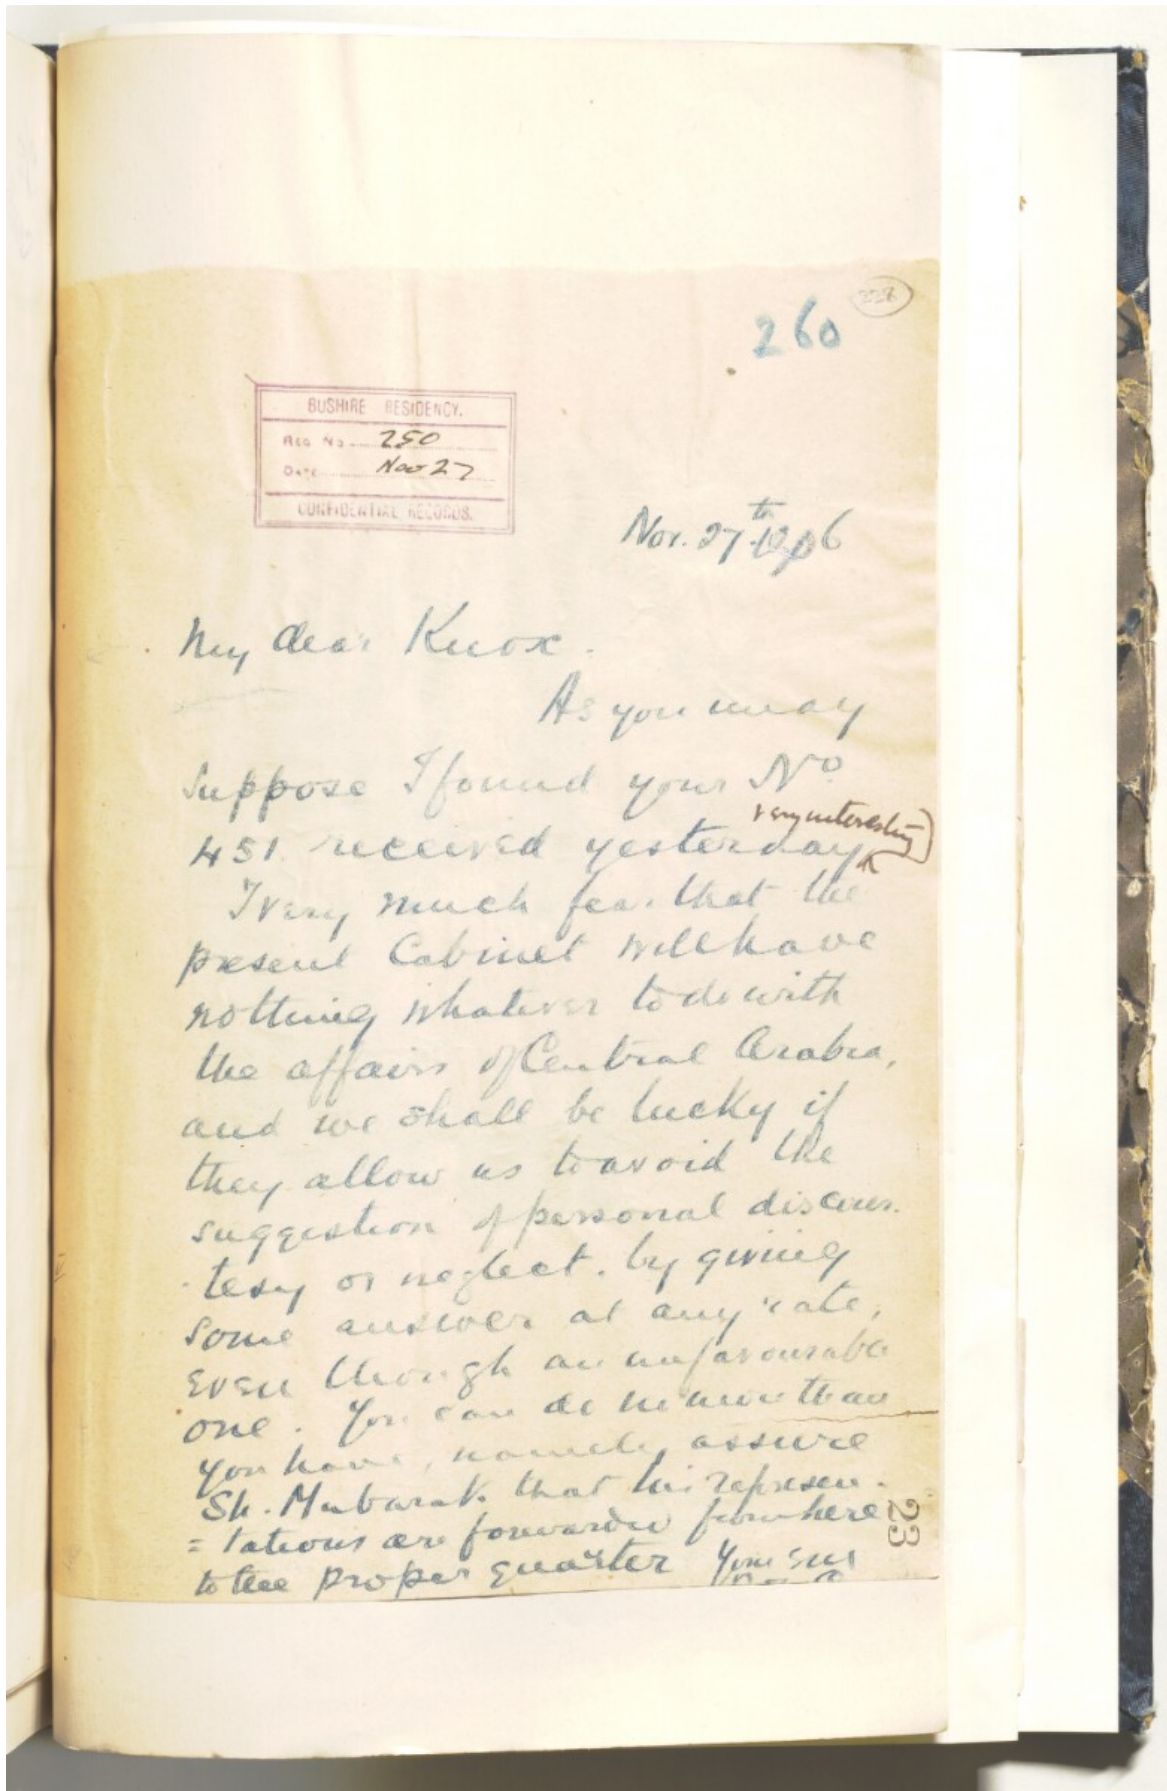 228
260
BUSHIRE RESIDENCY.
REG No. 250
DATE Nov 27
CONFIDENTIAL RECORDS.
Nov. 27th 1906
My dear Knox.
As you may
suppose I found your No
very interesting
451 received yesterday
I very much fear that the
present Cabinet will have
nothing whatever to do with
the affairs of Central Arabia,
and we shall be lucky if
they allow us to avoid the
suggestion of personal discour-
-tesy or neglect. by giving
some answer at any rate,
even though an unfavourable
one. You can do no more than
you have, namely assure
Sh. Mubarak that his represen-
=tations are forwarded from here
to the proper quarter Yours
23